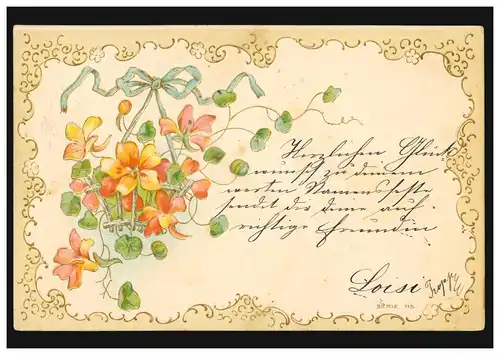 Herzlichen Glück
wunsch zu deinem
werten Namensfeste
sendet dir deine auf-
richtige Freundin
Loisi
SERIE 115.